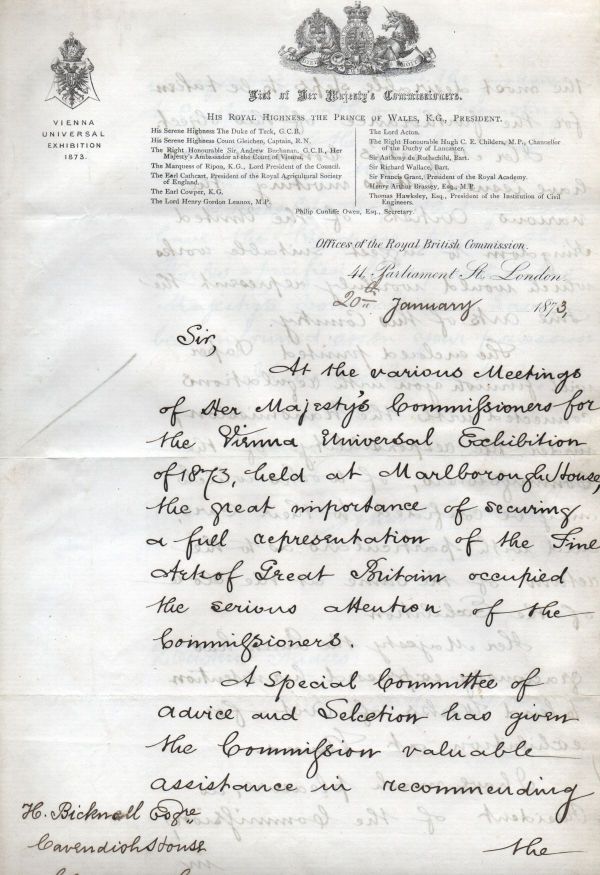 VIENNA
UNIVERSAL
EXHIBITION
1873.
List of Her Majesty's Commissioners.
HIS ROYAL HIGHNESS THE PRINCE OF WALES, K.G., PRESIDENT.
His Serene Highness The Duke of Teck, G.C.B.
His Serene Highness Count Gleichen, Captain, R.N.
The Right Honourable Sir Andrew Buchanan, G.C.B., Her
Majesty's Ambassador at the Court of Vienna.
The Marquess of Ripon, K.G., Lord President of the Council.
The Earl Cathcart, President of the Royal Agricultural Society
of England.
The Earl Cowper, K.G.
The Lord Henry Gordon Lennox, M.P.
The Lord Acton.
The Right Honourable Hugh C. E. Childers, M.P., Chancellor
of the Duchy of Lancaster.
Sir Anthony de Rothschild, Bart.
Sir Richard Wallace, Bart.
Sir Francis Grant, President of the Royal Academy.
Henry Arthur Brassey, Esq., M.P.
Thomas Hawksley, Esq., President of the Institution of Civil
Engineers.
Philip Cunliffe Owen, Esq., Secretary.
Offices of the Royal British Commission.
41, Parliament St. London.
20th January 1873,
Sir,
At the various Meetings
of Her Majesty's Commissioners for
the Vienna Universal Exhibition
of 1873, held at Marlborough House,
the great importance of securing
a full representation of the Fine
Arts of Great Britain occupied
the serious attention of the
Commissioners.
A Special Committee of
advice and Selection has given
the Commission valuable
assistance in recommending
H. Bicknell Esqre
Cavendish House
the